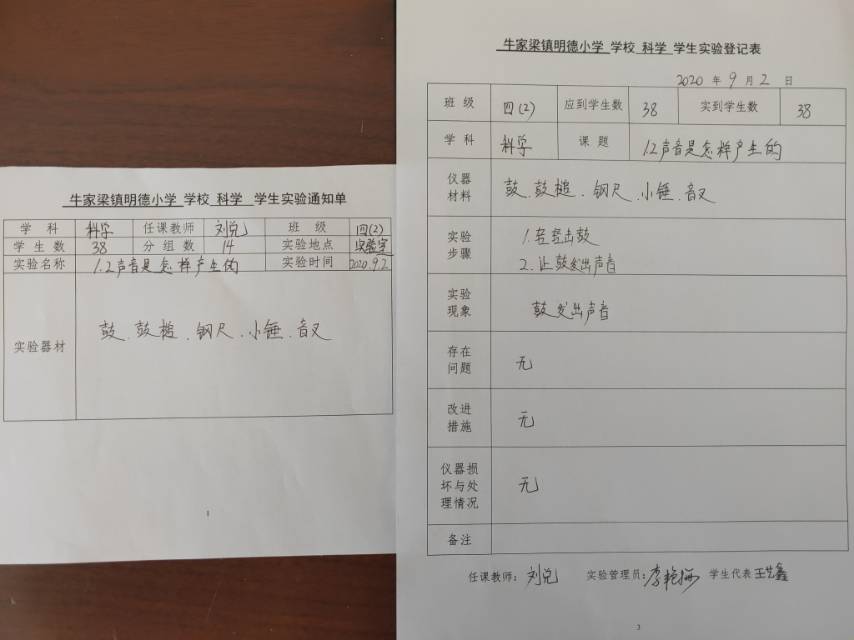 牛家梁镇明德小学 学校 科学 学生实验通知单
学科 科学 任课教师 刘兑 班级 四(2)
学生数 38 分组数 14 实验地点 实验室
实验名称 1.2声音是怎样产生的 实验时间 2020.9.2
实验器材 鼓.鼓槌.钢尺.小锤.音叉
1
牛家梁镇明德小学 学校 科学 学生实验登记表
2020 年 9 月 2 日
班级 四(2) 应到学生数 38 实到学生数 38
学科 科学 课题 1.2声音是怎样产生的
仪器材料 鼓.鼓槌.钢尺.小锤.音叉
实验步骤 1.轻轻击鼓
2.让鼓发出声音
实验现象 鼓发出声音
存在问题 无
改进措施 无
仪器损坏与处理情况 无
备注
任课教师: 刘兑 实验管理员: 李艳 学生代表